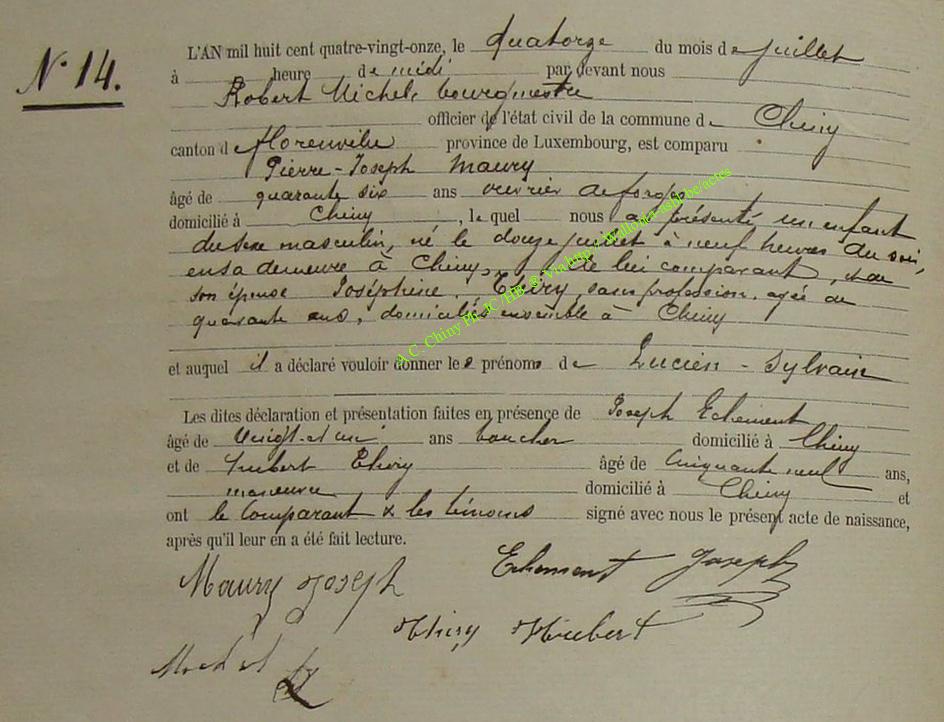 N° 14.
L'AN mil huit cent quatre-vingt-onze, le quatorze du mois de juillet
à heure de midi par devant nous
Robert Michel, bourgmestre
officier de l'état civil de la commune de Chiny
canton de Florenville province de Luxembourg, est comparu
Pierre-Joseph Maury
âgé de quarante six ans ouvrier de forge
domicilié à Chiny, lequel nous a présenté un enfant
du sexe masculin, né le douze juillet à neuf heures du soir,
en sa demeure à Chiny, de lui comparant, et de
son épouse Joséphine Thiry, sans profession, agée de
quarante ans, domiciliés ensemble à Chiny
et auquel il a déclaré vouloir donner les prénoms de Lucien-Sylvain
Les dites déclaration et présentation faites en présence de Joseph Echement
âgé de vingt-et-un ans boucher domicilié à Chiny
et de Hubert Thiry âgé de cinquante neuf ans,
manœuvre domicilié à Chiny et
ont le comparant & les témoins signé avec nous le présent acte de naissance,
après qu'il leur en a été fait lecture.
Maury Joseph Echement Joseph
Thiry Hubert
A.C. Chiny